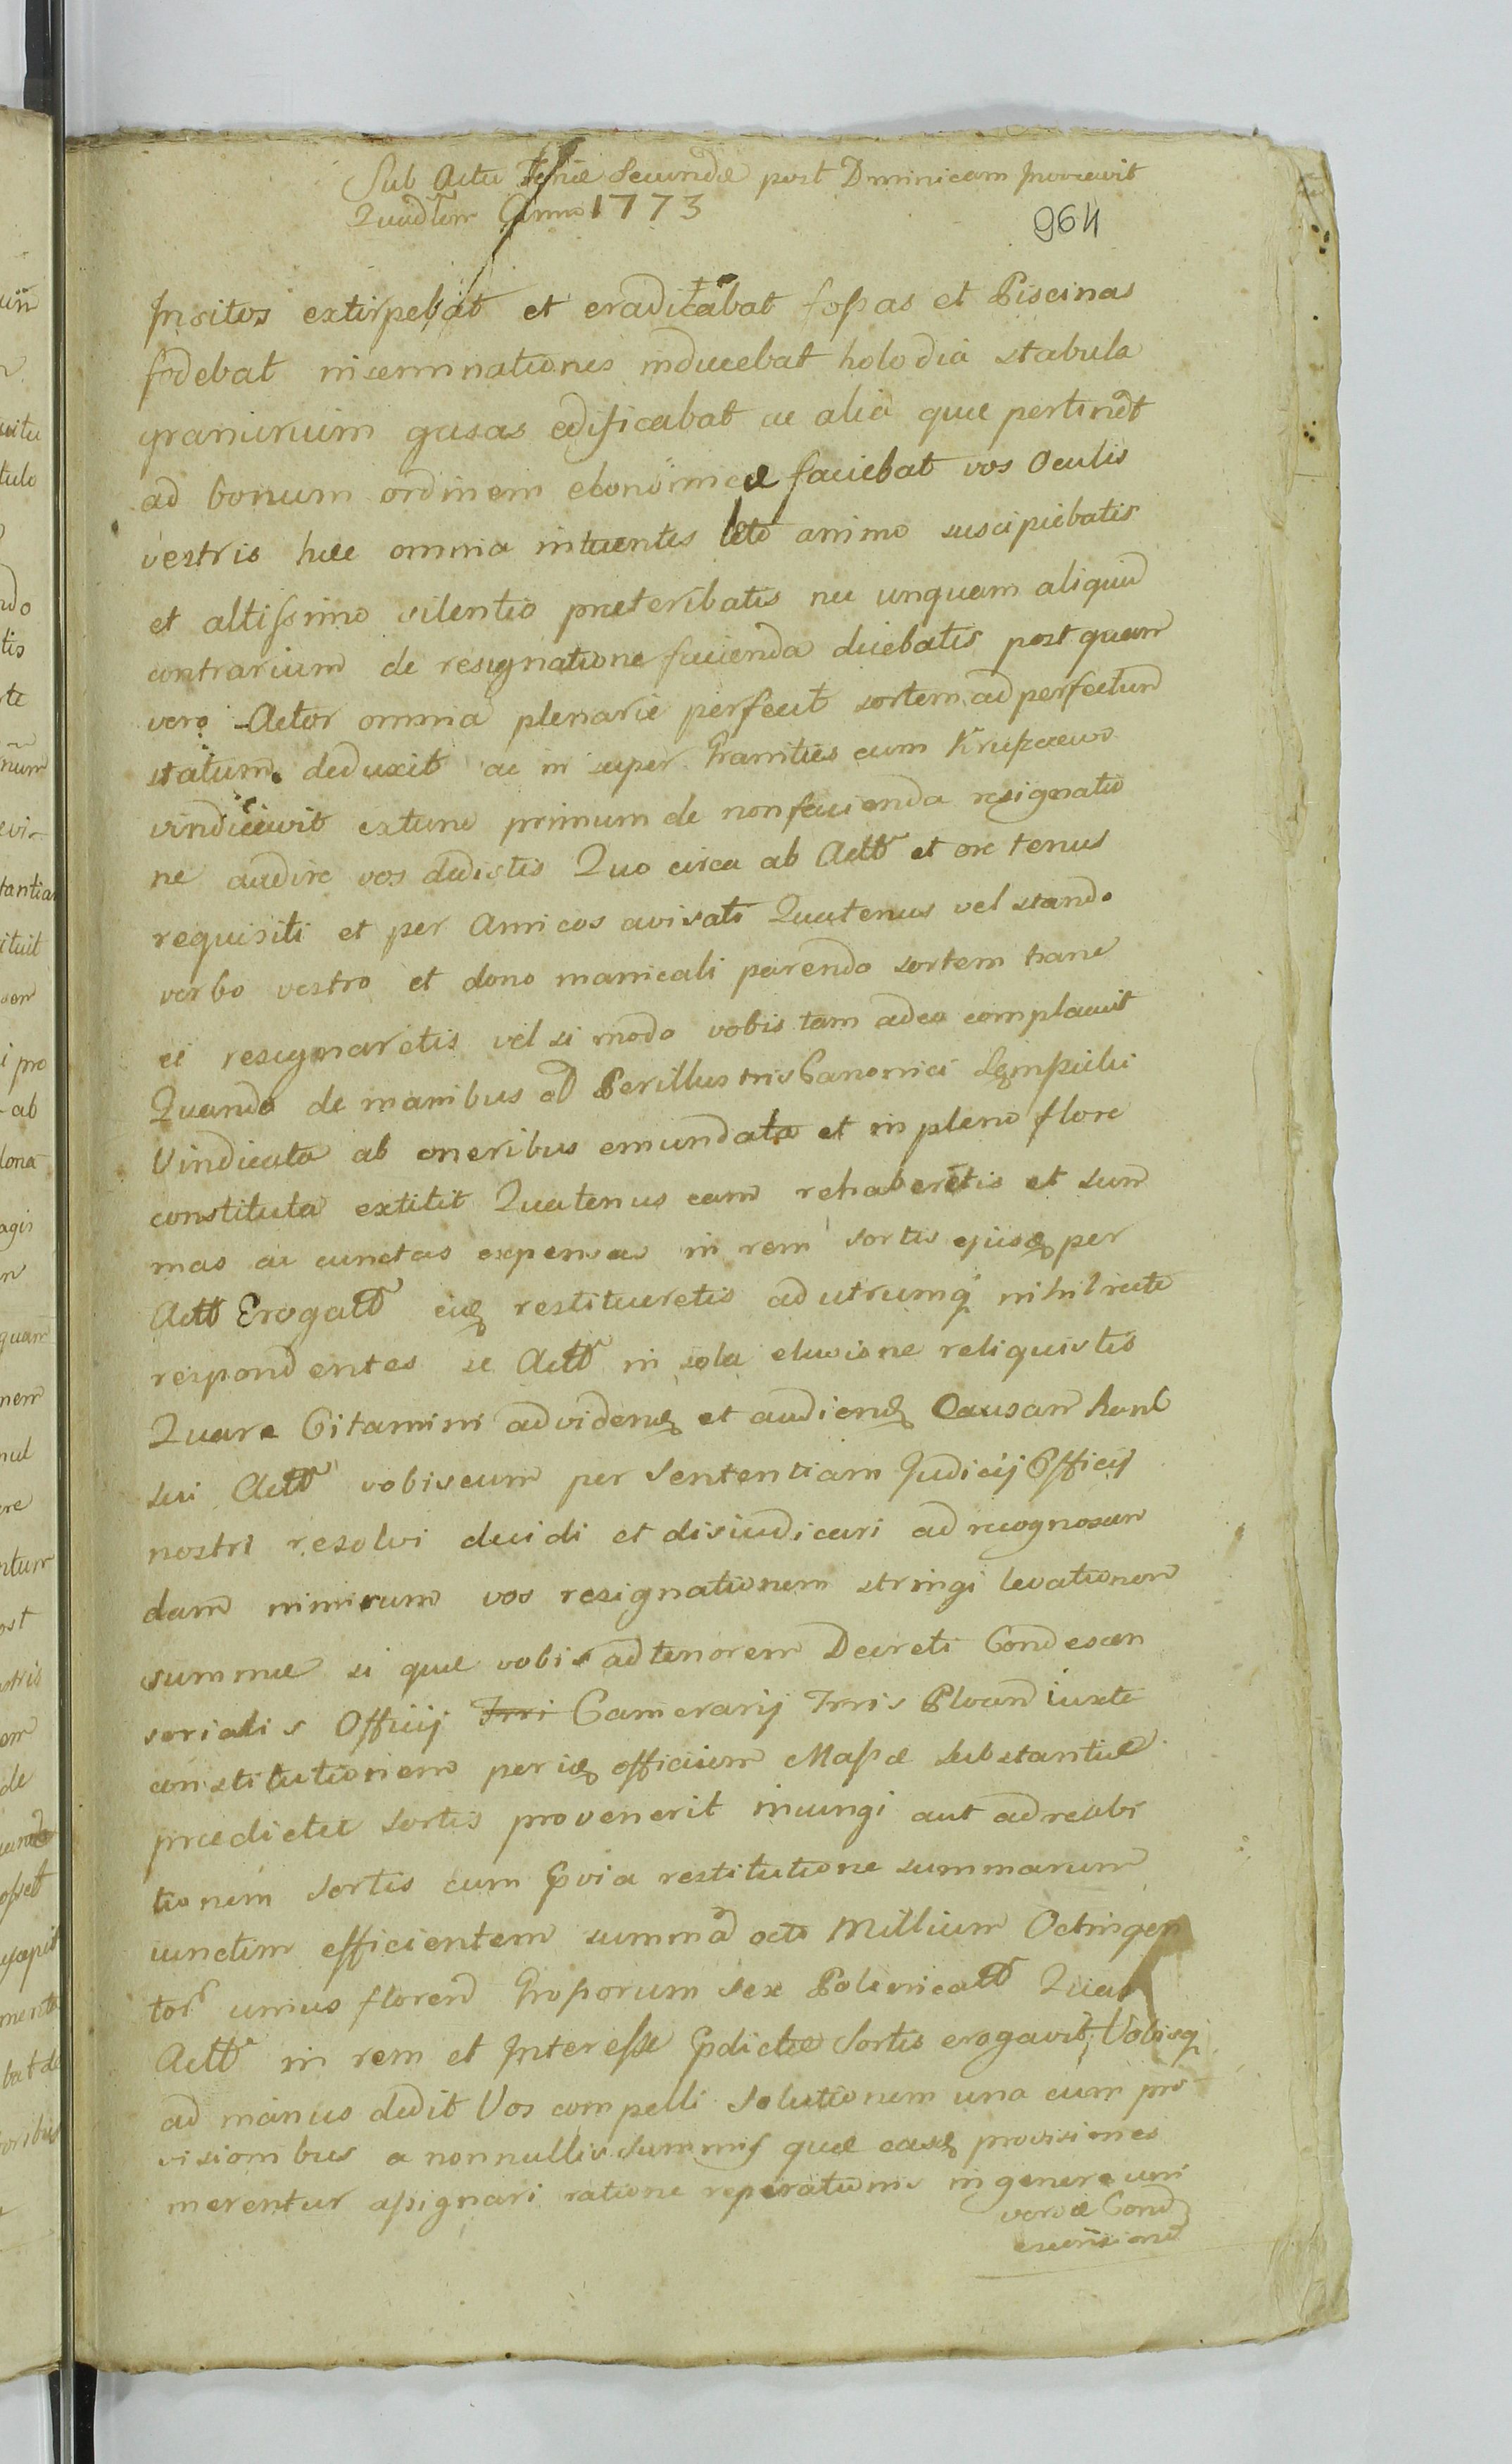 Sub Actu Feriæ Secundæ post Dominicam Invocavit
Quadlem Anno 1773
964
Insitos extirpebat et eradicabat fossas et Piscinas
fodebat inseminationes inducebat holodia stabula
granirium gasas edificabat ac alia quæ pertinet
ad bonum ordinem ekonomicæ faciebat vos Oculis
vestris hæc omnia intuentes læto animo suscipiebatis
et altissimo silentio præteribatis nec unquam aliquid
contrarium de resignatione facienda dicebatis post quam
vero Actor omnia plenarie perfecit sortem ad perfectum
statum deduxit ac in super Granities cum Krupaeuo
vindicavit extunc primum de non facienda resignatio
ne audire vos dedistis Quo circa ab Actte et ore tenus
requisiti et per Amicos avisati Quatenus vel stando
verbo vestro et dono manicali parendo sortem hanc
ei resignaretis vel si modo vobis tam adeo complacuit
Quando de manibus olim Perillustris Canonici Lempicki
Vindicata ab oneribus emundata et in pleno flore
constituta extitit Quatenus eam rehaberetis et sum
mas ac cunctas expensas in rem sortis ejusd per
Actt Erogatt eid restitueretis ad utrumq nihil recte
respondentes se Actt in sola elusione reliquistis
Quare Citamini ad videnđ et audienđ Causam hanc
sui Actt vobiscum per Sententiam Judicij Officij
nostri resolvi decidi et disiudicari ad recognoscen
dam nimirum vos resignationem stringi levationem
summæ si quæ vobis ad tenorem Decreti Condescen
sorialis Officij Trri Camerarij Trris Plocen iuxta
constitutionem per iđ officium Massæ substantiæ
prædictæ sortis provenerit iniungi aut ad reabi
tionem sortis cum Pvia restitutione summarum
iunctim efficientem summã octo Millium Octingen
tor unius floren Grossorum sex Polonicatt Quas
Actt in rem et Interesse Pdictæ Sortis erogavit; Vobisq
ad manus dedit Vos compelli Solutionem una cum pro
visionibus a nonnullis Summis quæ easđ provisiones
merentur assignari ratione reparationis in genere uni
versæ Cond
escensionis